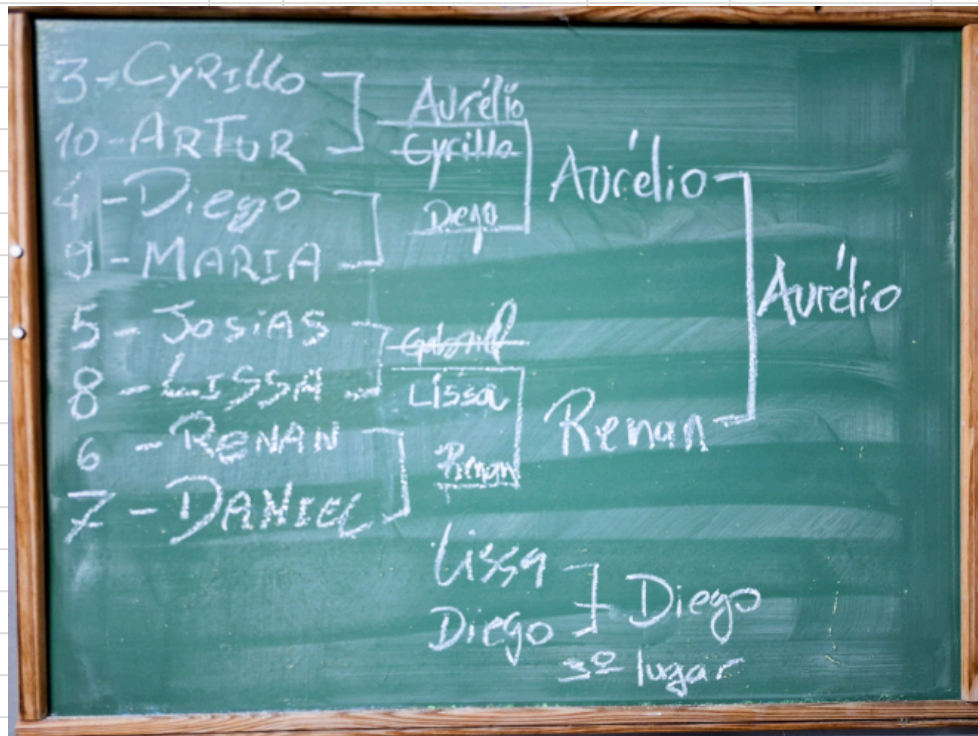 3-CyRIllo
10-ARTUR
4-Diego
9-MARIA
5-JosiAS
8-LISSA
6-RENAN
7-DANIEL
Aurélio
Cyrillo
Dego
Gabriel
Lissa
Renan
Aurélio
Renan
Aurélio
Lissa
Diego
Diego
3º lugar